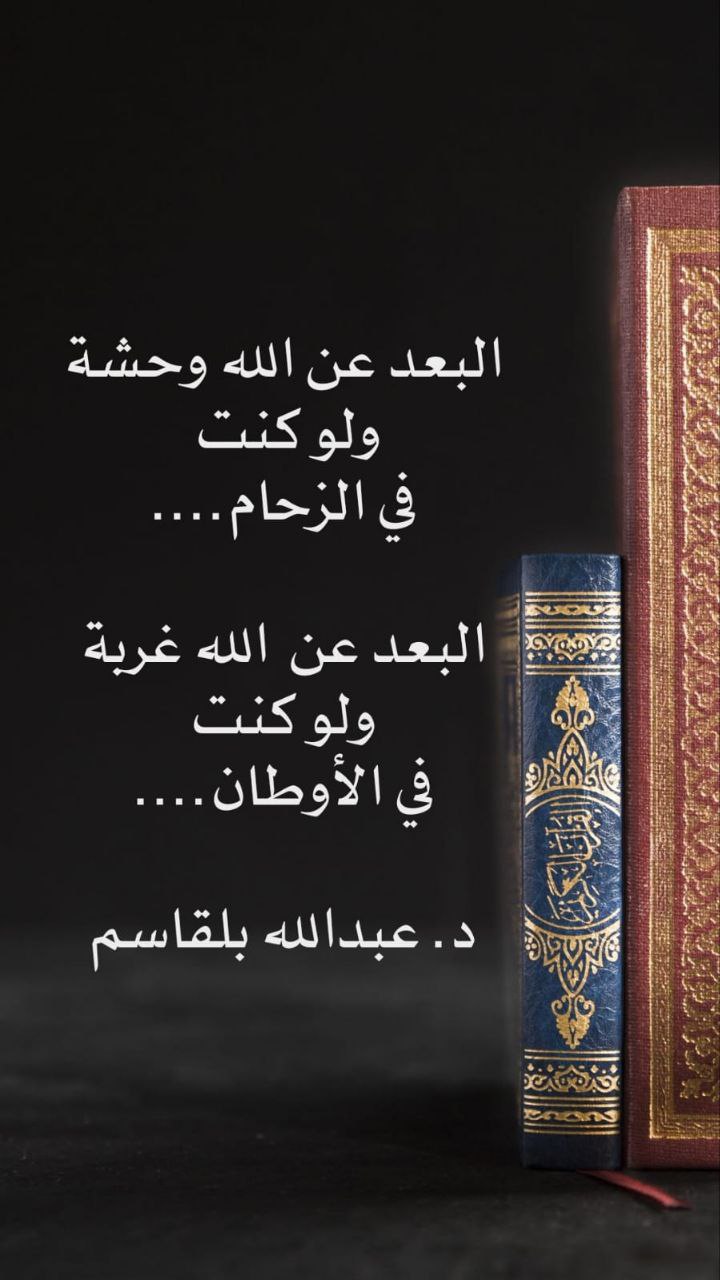 البعد عن الله وحشة
ولو كنت
في الزحام....
البعد عن الله غربة
ولو كنت
في الأوطان....
د. عبدالله بلقاسم
القرآن الكريم